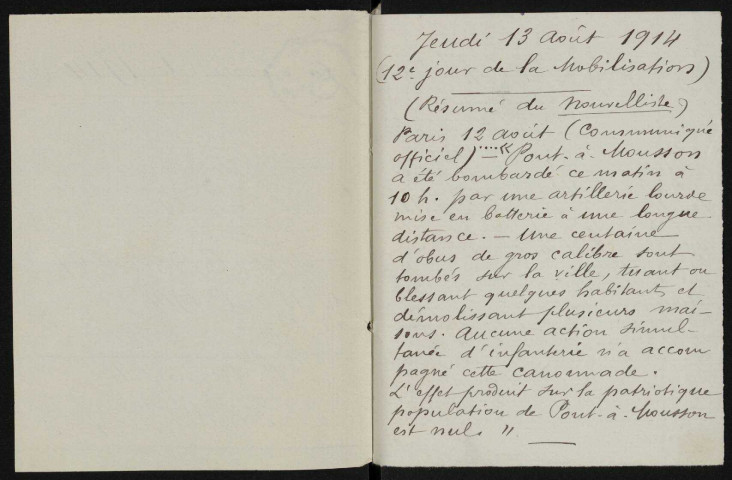 Jeudi 13 août 1914
(12e jour de la Mobilisation)
(Résumé du Nouvelliste)
Paris 12 août (Communiqué
officiel) .... — « Pont-à-Mousson
a été bombardé ce matin à
10 h. par une artillerie lourde
mise en batterie à une longue
distance. — Une centaine
d'obus de gros calibre sont
tombés sur la ville, tuant ou
blessant quelques habitants et
démolissant plusieurs mai-
sons. Aucune action simul-
tanée d'infanterie n'a accom
pagné cette canonnade.
L'effet produit sur la patriotique
population de Pont-à-Mousson
est nul. »